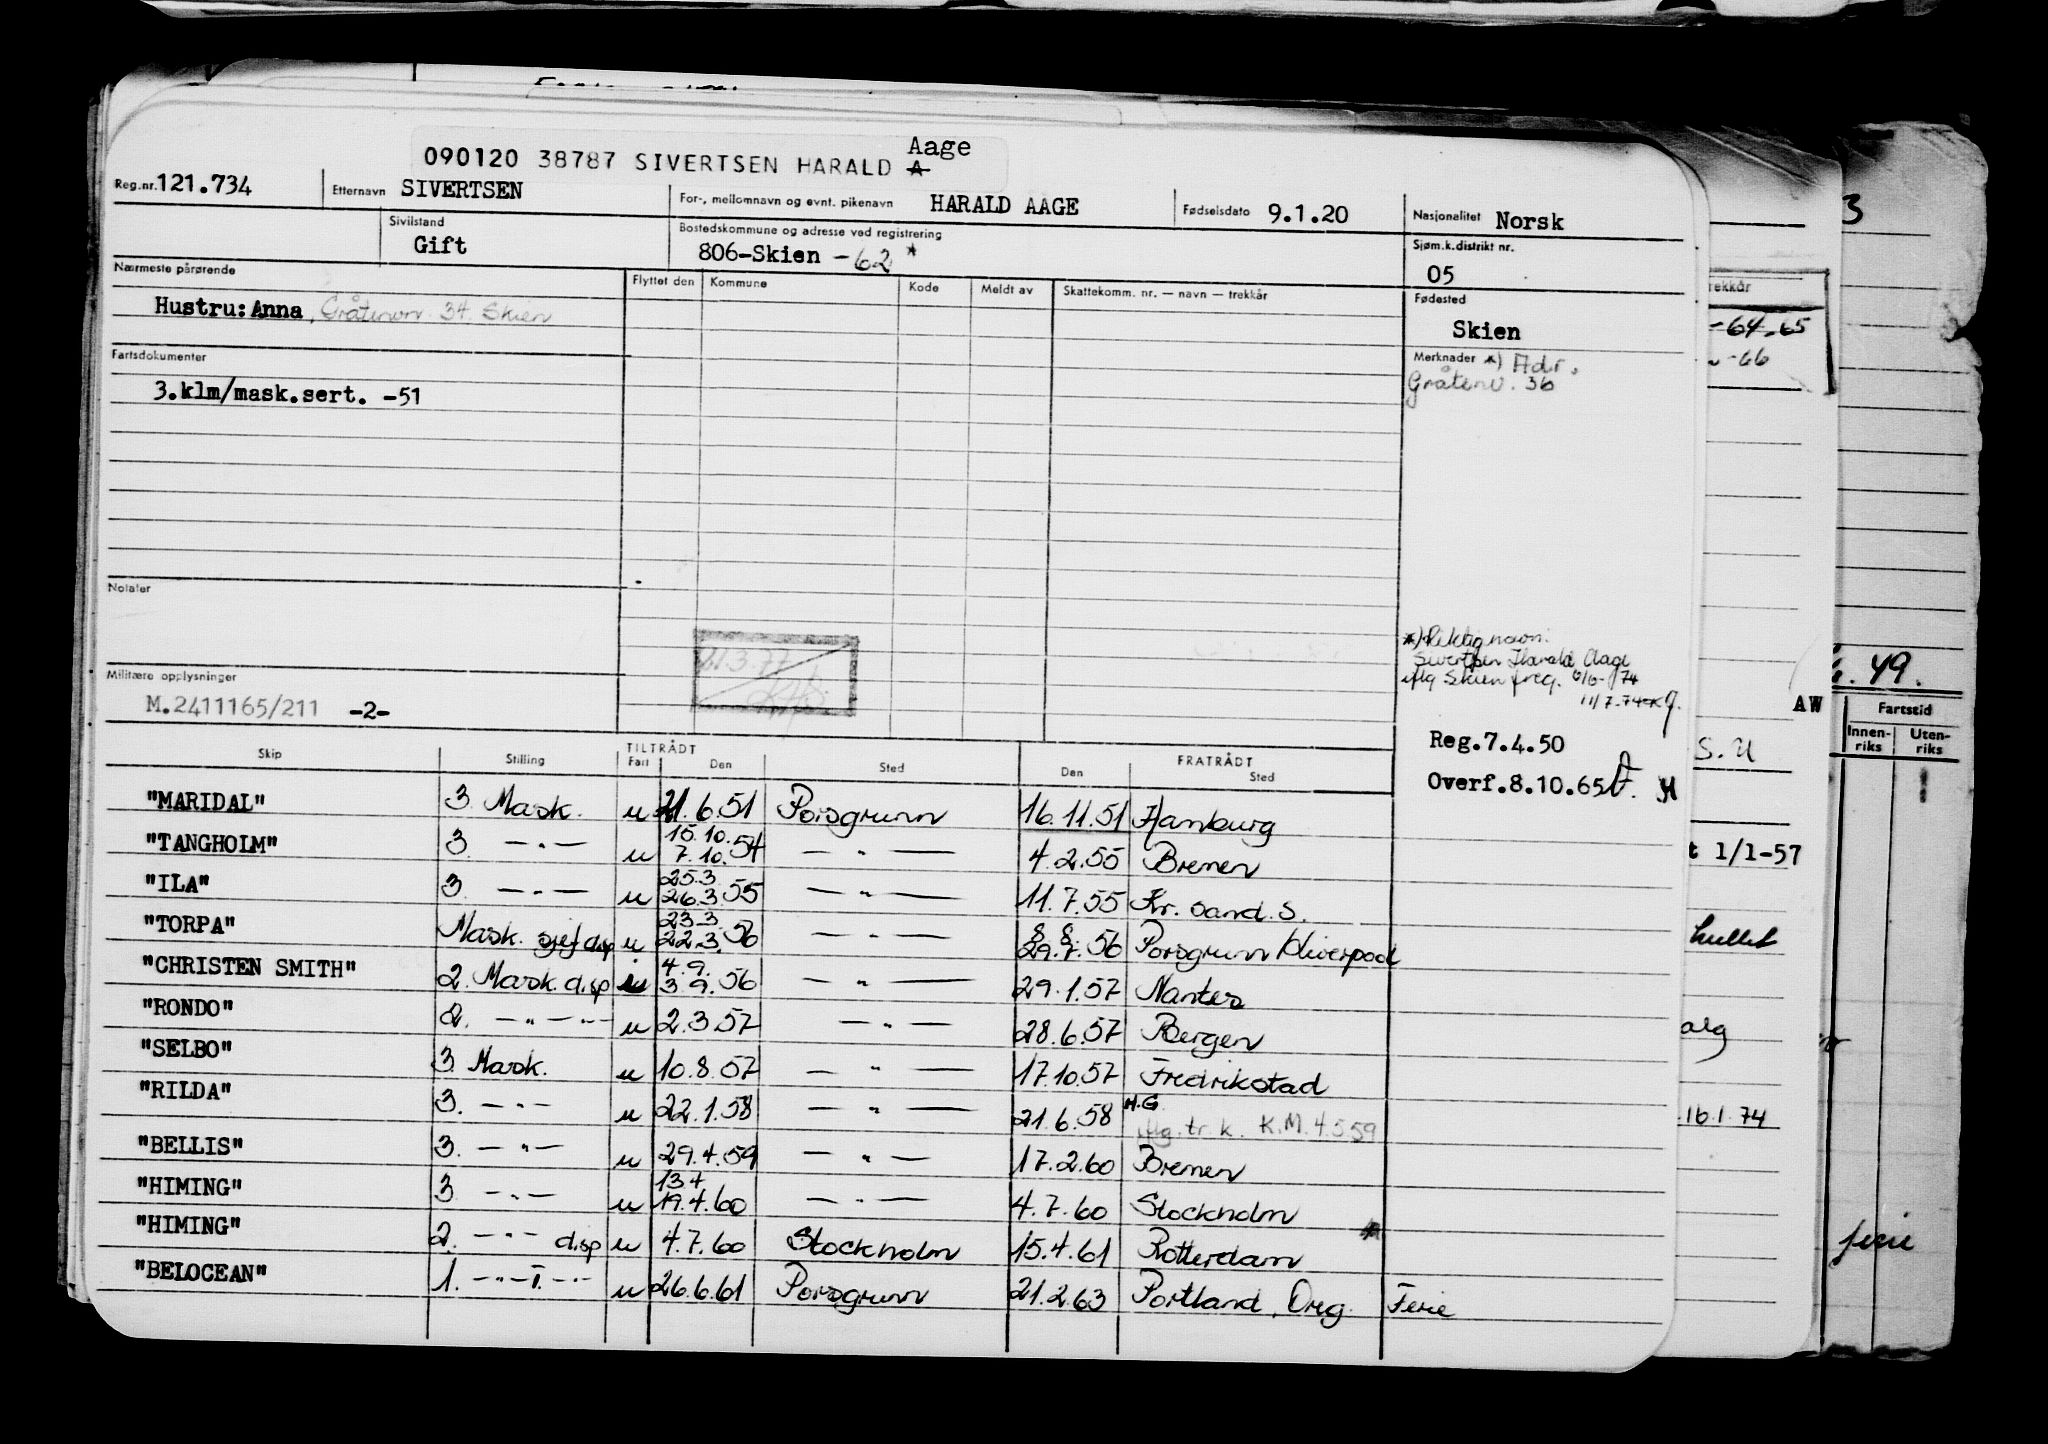 090120 38787 SIVERTSEN HARALD A Aage
Reg.nr. 121.734 Etternavn SIVERTSEN For-, mellomnavn og evnt. pikenavn HARALD AAGE Fødselsdato 9.1.20 Nasjonalitet Norsk
Sivilstand Gift Bostedskommune og adresse ved registrering 806-Skien -62 * Sjøm.k.distrikt nr. 05
Nærmeste pårørende Flyttet den Kommune Kode Meldt av Skattekomm. nr. — navn — trekkår Fødested
Hustru: Anna, Gråtenvn. 34. Skien Skien
Fartsdokumenter Merknader *) Adr.
3.klm/mask.sert. -51 Gråtenv. 36
Notater
21.3.77
*) Riktig navn:
Sivertsen Harald Aage
iflg Skien freg. 6/6-74
11/7.74
Militære opplysninger
M.2411165/211 -2-
Reg.7.4.50
Overf.8.10.65
Skip Stilling TILTRÅDT Fart Den Sted FRATRÅDT Den Sted
"MARIDAL" 3. Mask. u 21.6.51 Porsgrunn 16.11.51 Hamburg
"TANGHOLM" 3. —"— u 15.10. 7.10.54 —"— 4.2.55 Bremen
"ILA" 3. —"— u 25.3 26.3.55 —"— 11.7.55 Kr. sand. S.
"TORPA" Mask. sjef disp u 23.3. 22.3.56 —"— 8.8. 29.7.56 Porsgrunn/Liverpool
"CHRISTEN SMITH" 2. Mask. disp u 4.9. 3.9.56 —"— 29.1.57 Nantes
"RONDO" 2. —"—"— u 2.3.57 —"— 28.6.57 Bergen
"SELBO" 3. Mask. u 10.8.57 —"— 17.10.57 Fredrikstad
"RILDA" 3. —"— u 22.1.58 —"— 21.6.58 H.G. iflg. tr. k. K.M. 4.5.59
"BELLIS" 3. —"— u 29.4.59 —"— 17.2.60 Bremen
"HIMING" 3. —"— u 13.4 19.4.60 —"— 4.7.60 Stockholm
"HIMING" 2. —"— disp u 4.7.60 Stockholm 15.4.61 Rotterdam
"BELOCEAN" 1. —"—"— u 26.6.61 Porsgrunn 21.2.63 Portland, Oreg. Ferie
3
trekkår
-64-65
-66
49.
AW
Fartstid
Innenriks Utenriks
S. U
t 1/1-57
hullet
alg
16.1.74
ferie